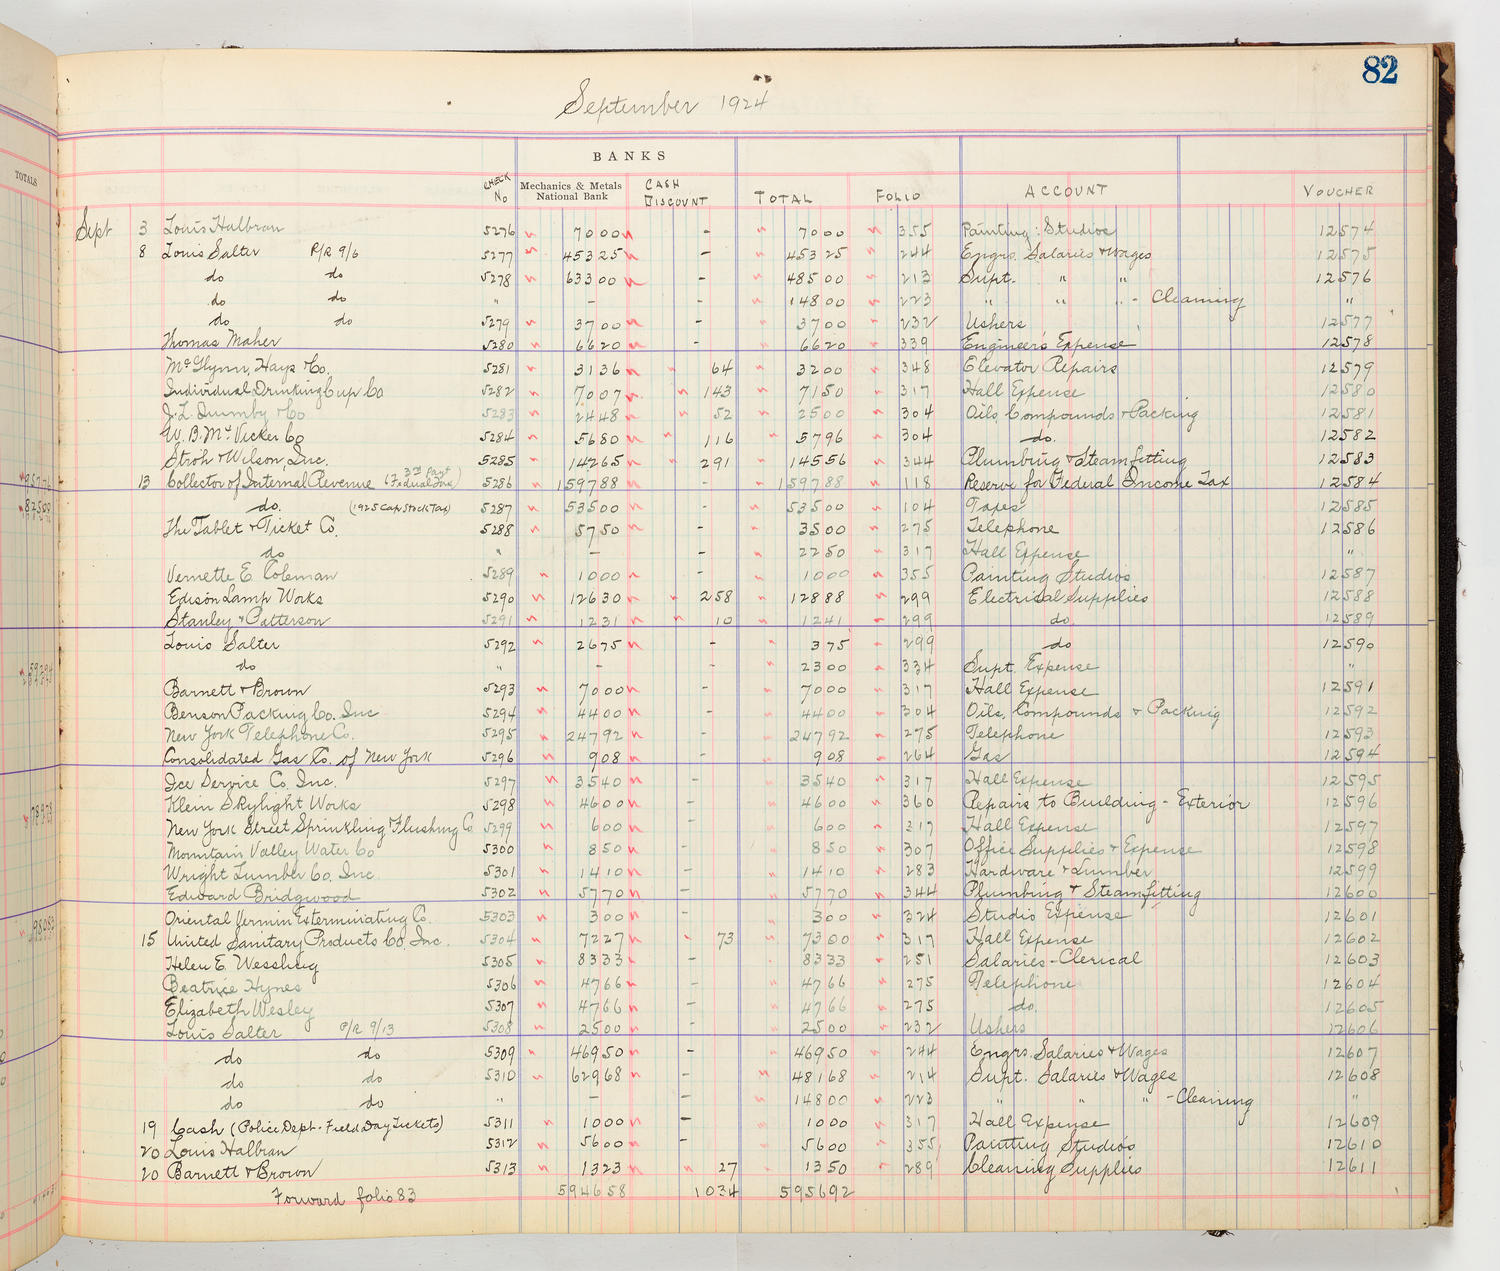 82
September 1924
BANKS
TOTALS
CHECK No Mechanics & Metals National Bank CASH DISCOUNT TOTAL FOLIO ACCOUNT VOUCHER
Sept 3 Louis Halbran 5276 " 7000 " - " 7000 " 355 Painting: Studios 12574
8 Louis Salter P/R 9/6 5277 " 45325 " - " 45325 " 244 Engrs. Salaries & Wages 12575
do do 5278 " 63300 " - " 48500 " 213 Supt. " " 12576
do do " - - " 14800 " 223 " " " - Cleaning "
do do 5279 " 3700 " - " 3700 " 232 Ushers 12577
Thomas Maher 5280 " 6620 " - " 6620 " 339 Engineer's Expense 12578
McGlynn, Hays & Co. 5281 " 3136 " " 64 " 3200 " 348 Elevator Repairs 12579
Individual Drinking Cup Co 5282 " 7007 " " 143 " 7150 " 317 Hall Expense 12580
J. L. Quimby & Co 5283 " 2448 " " 52 " 2500 " 304 Oils, Compounds & Packing 12581
W. B. McVicker Co 5284 " 5680 " " 116 " 5796 " 304 do. 12582
Stroh & Wilson, Inc. 5285 " 14265 " " 291 " 14556 " 344 Plumbing & Steamfitting 12583
13 Collector of Internal Revenue (3rd Part Federal Inc) 5286 " 159788 " - " 159788 " 118 Reserve for Federal Income Tax 12584
do. (1925 Cap Stock Tax) 5287 " 53500 " - " 53500 " 104 Taxes 12585
The Tablet & Ticket Co. 5288 " 5750 " - " 3500 " 275 Telephone 12586
do " - - " 2250 " 317 Hall Expense "
Vernette E. Coleman 5289 " 1000 " - " 1000 " 355 Painting Studios 12587
Edison Lamp Works 5290 " 12630 " " 258 " 12888 " 299 Electrical Supplies 12588
Stanley & Patterson 5291 " 1231 " " 10 " 1241 " 299 do 12589
Louis Salter 5292 " 2675 - " 375 " 299 do 12590
do " - - " 2300 " 334 Supt. Expense "
Barnett & Brown 5293 " 7000 " - " 7000 " 317 Hall Expense 12591
Benson Packing Co. Inc 5294 " 4400 " - " 4400 " 304 Oils, Compounds & Packing 12592
New York Telephone Co. 5295 " 24792 " - " 24792 " 275 Telephone 12593
Consolidated Gas Co. of New York 5296 " 908 " - " 908 " 264 Gas 12594
Ice Service Co. Inc. 5297 " 3540 " - " 3540 " 317 Hall Expense 12595
Klein Skylight Works 5298 " 4600 " - " 4600 " 360 Repairs to Building - Exterior 12596
New York Street Sprinkling & Flushing Co 5299 " 600 " - " 600 " 317 Hall Expense 12597
Mountain Valley Water Co 5300 " 850 " - " 850 " 307 Office Supplies & Expense 12598
Wright Lumber Co. Inc. 5301 " 1410 " - " 1410 " 283 Hardware & Lumber 12599
Edward Bridgwood 5302 " 5770 " - " 5770 " 344 Plumbing & Steamfitting 12600
Oriental Vermin Exterminating Co. 5303 " 300 " - " 300 " 324 Studio Expense 12601
15 United Sanitary Products Co. Inc. 5304 " 7227 " " 73 " 7300 " 317 Hall Expense 12602
Helen E. Wessling 5305 " 8333 " - " 8333 " 251 Salaries - Clerical 12603
Beatrice Hynes 5306 " 4766 " - " 4766 " 275 Telephone 12604
Elizabeth Wesley 5307 " 4766 " - " 4766 " 275 do. 12605
Louis Salter P/R 9/13 5308 " 2500 " - " 2500 " 232 Ushers 12606
do do 5309 " 46950 " - " 46950 " 244 Engrs. Salaries & Wages 12607
do do 5310 " 62968 " - " 48168 " 214 Supt. Salaries & Wages 12608
do do " - - " 14800 " 223 " " " - Cleaning "
19 Cash (Police Dept - Field Day Tickets) 5311 " 1000 " - " 1000 " 317 Hall Expense 12609
20 Louis Halbran 5312 " 5600 " - " 5600 " 355 Painting Studios 12610
20 Barnett & Brown 5313 " 1323 " " 27 " 1350 " 289 Cleaning Supplies 12611
Forward folio 83 594658 1034 595692